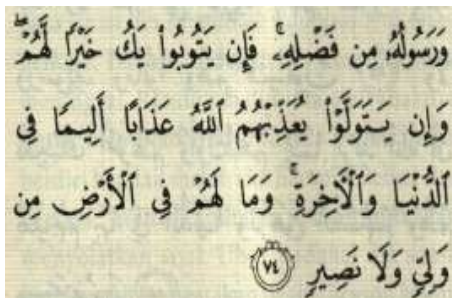 وَرَسُولُهُۥ مِن فَضۡلِهِۦۚ فَإِن يَتُوبُواْ يَكُ خَيۡرٗا لَّهُمۡۖ
وَإِن يَتَوَلَّوۡاْ يُعَذِّبۡهُمُ ٱللَّهُ عَذَابًا أَلِيمٗا فِي
ٱلدُّنۡيَا وَٱلۡأٓخِرَةِۚ وَمَا لَهُمۡ فِي ٱلۡأَرۡضِ مِن
وَلِيّٖ وَلَا نَصِيرٖ ٧٤